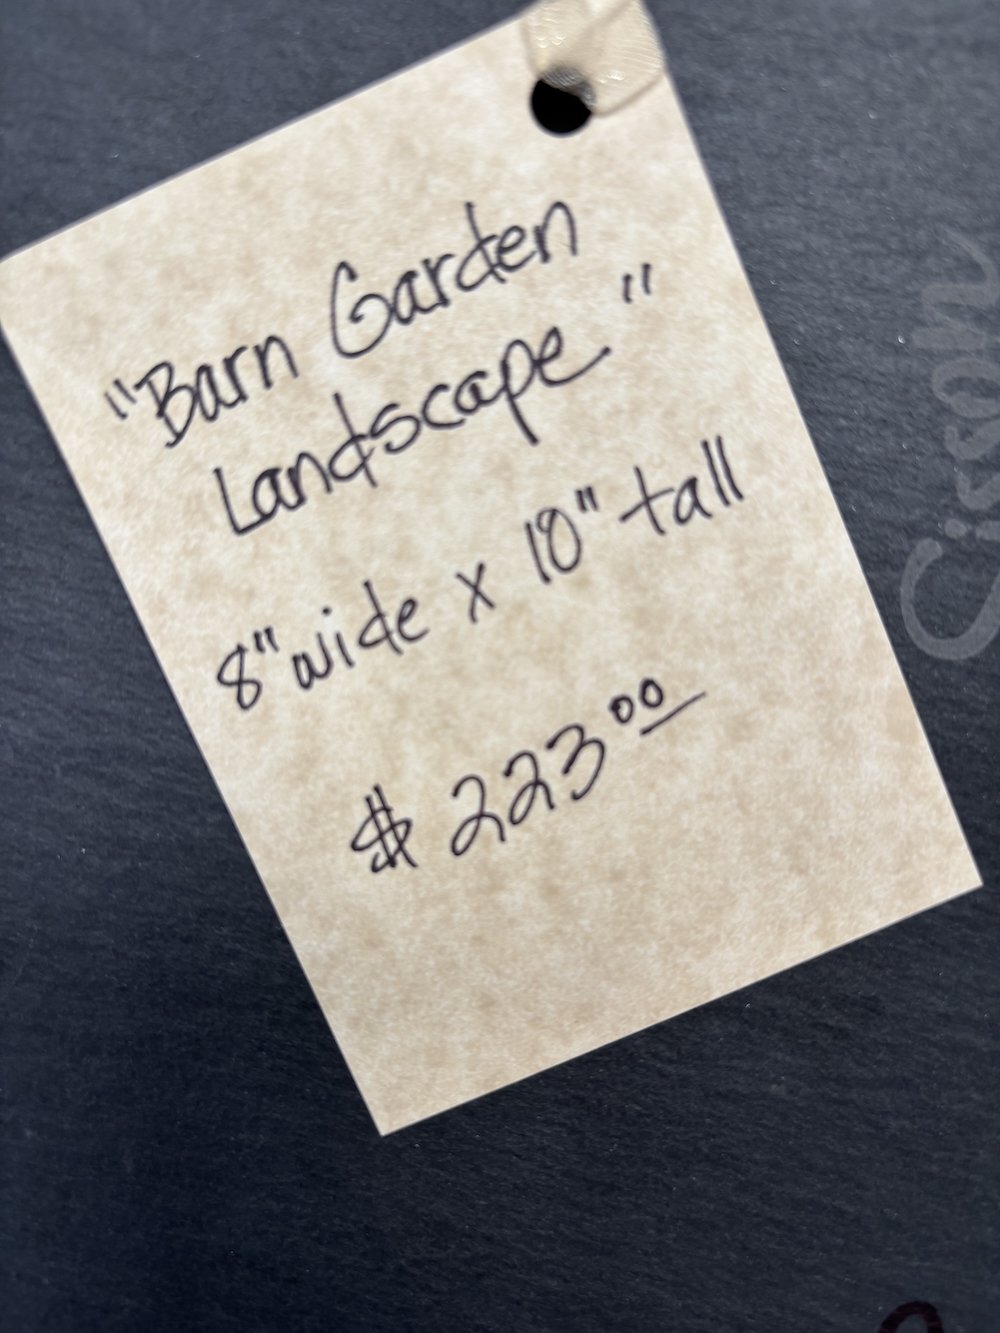 "Barn Garden
Landscape"
8" wide x 10" tall
$ 223.00
Sisson